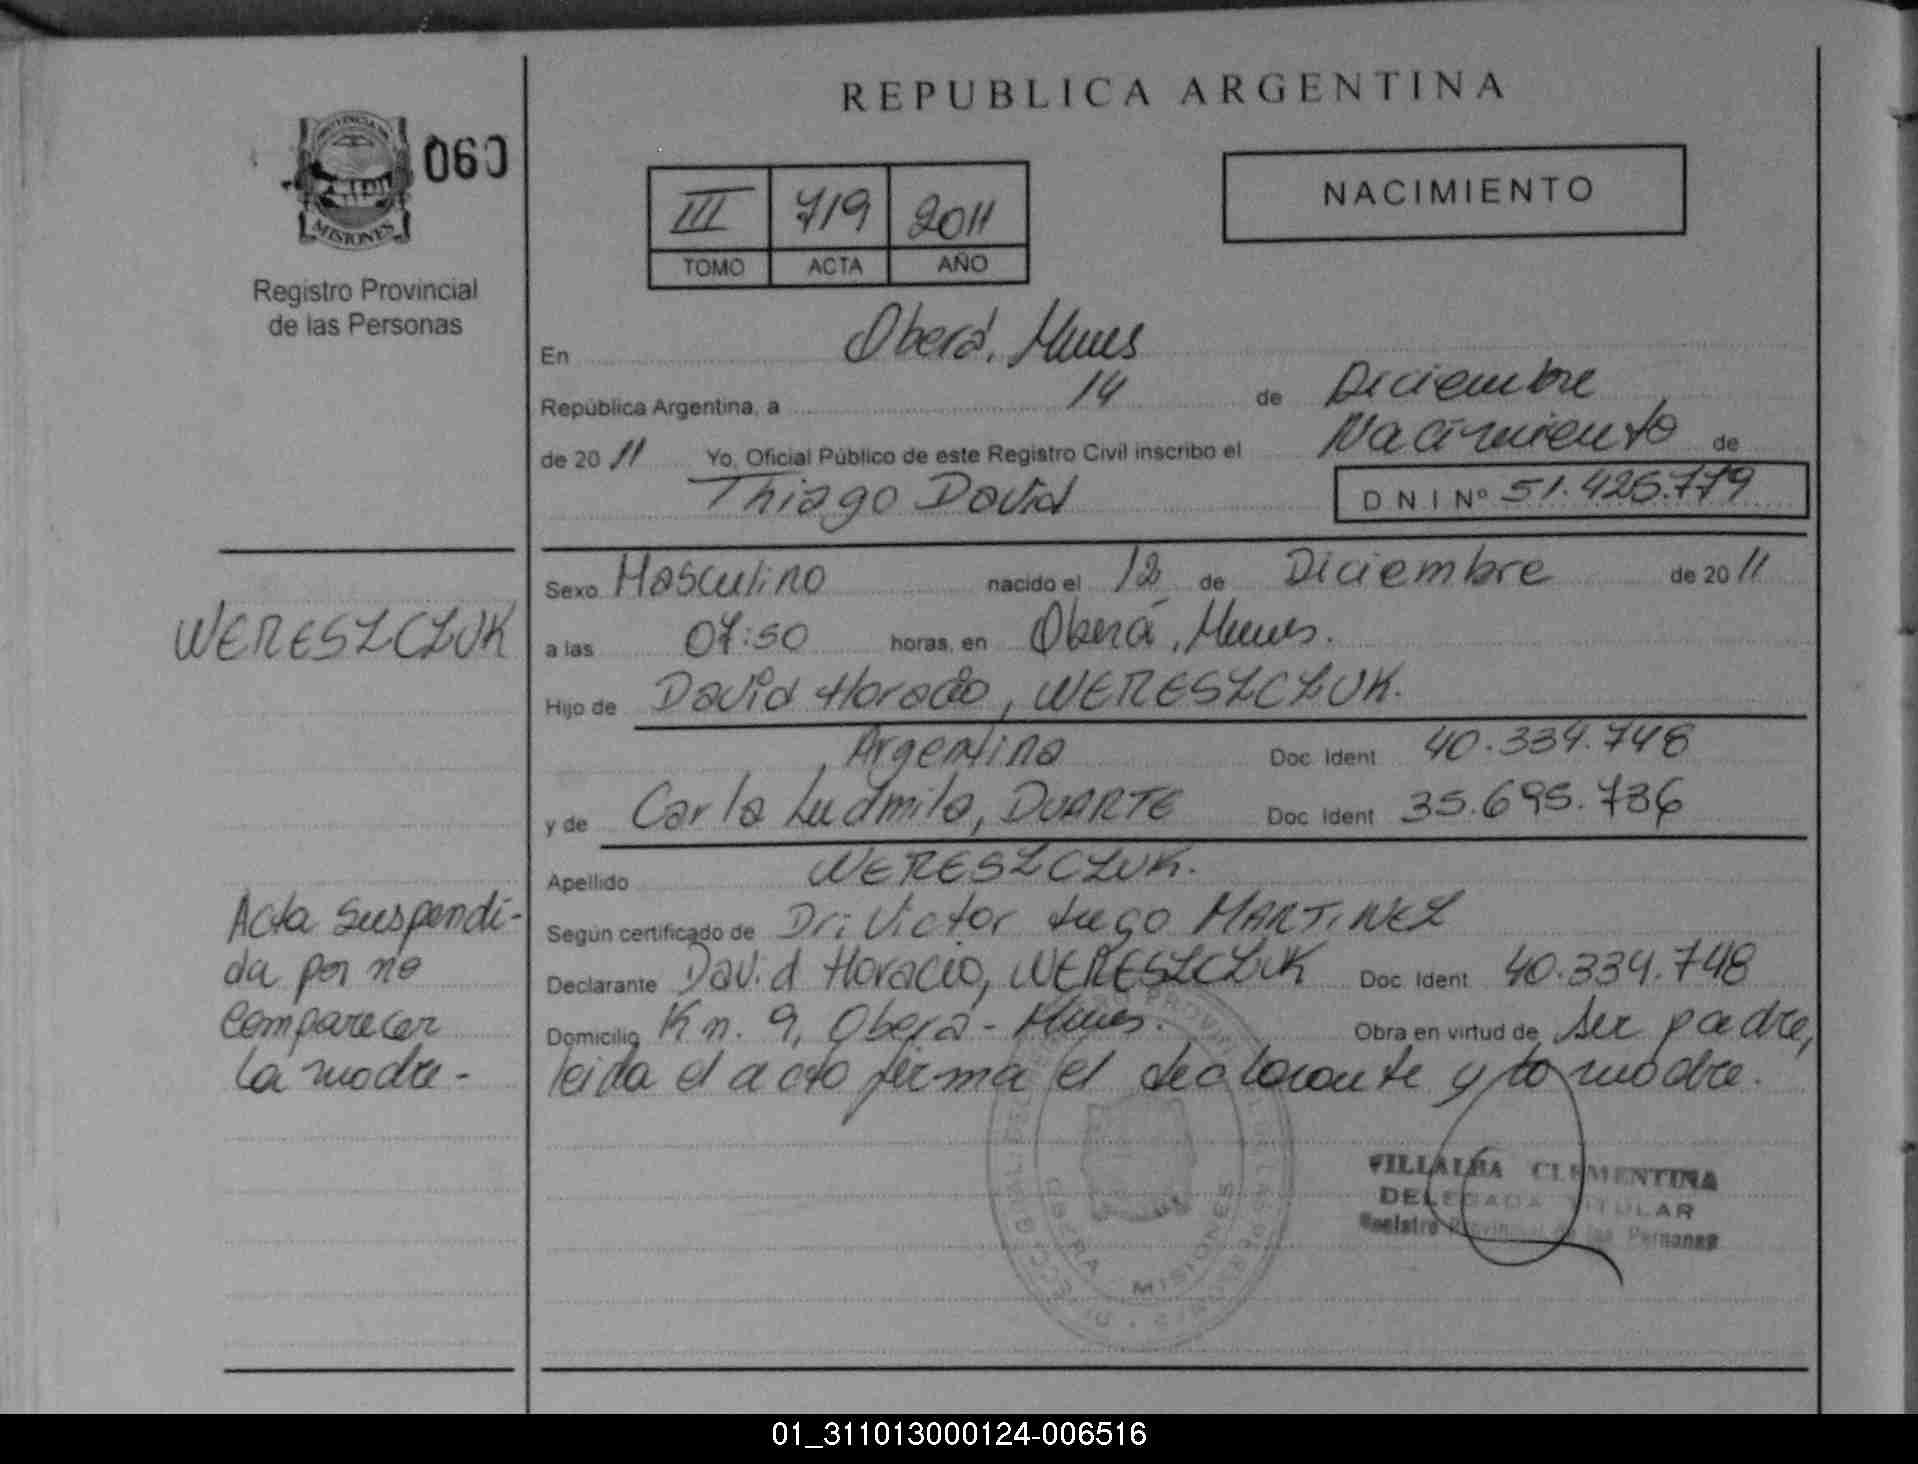 REPUBLICA ARGENTINA
PROVINCIA DE
MISIONES
060
Registro Provincial
de las Personas
III 719 2011
TOMO ACTA AÑO
NACIMIENTO
En Oberá, Mnes
República Argentina, a 14 de Diciembre
de 2011 Yo, Oficial Público de este Registro Civil inscribo el Nacimiento de
Thiago David
DNI Nº 51.426.779
WERESZCZUK
Sexo Masculino nacido el 12 de Diciembre de 2011
a las 07:50 horas, en Oberá, Mnes.
Hijo de David Horacio, WERESZCZUK.
Argentina Doc. Ident 40.334.748
y de Carla Ludmila, DUARTE Doc. Ident 35.695.736
Apellido WERESZCZUK.
Según certificado de Dr: Victor Hugo MARTINEZ
Declarante David Horacio, WERESZCZUK Doc. Ident 40.334.748
Domicilio Km. 9, Oberá - Mnes. Obra en virtud de ser padre,
leida el acta firma el declarante y la madre.
Acta suspendi-
da por no
comparecer
la madre -
OBERA MISIONES
VILLALBA CLEMENTINA
DELEGADA TITULAR
Registro Provincial de las Personas
01_311013000124-006516